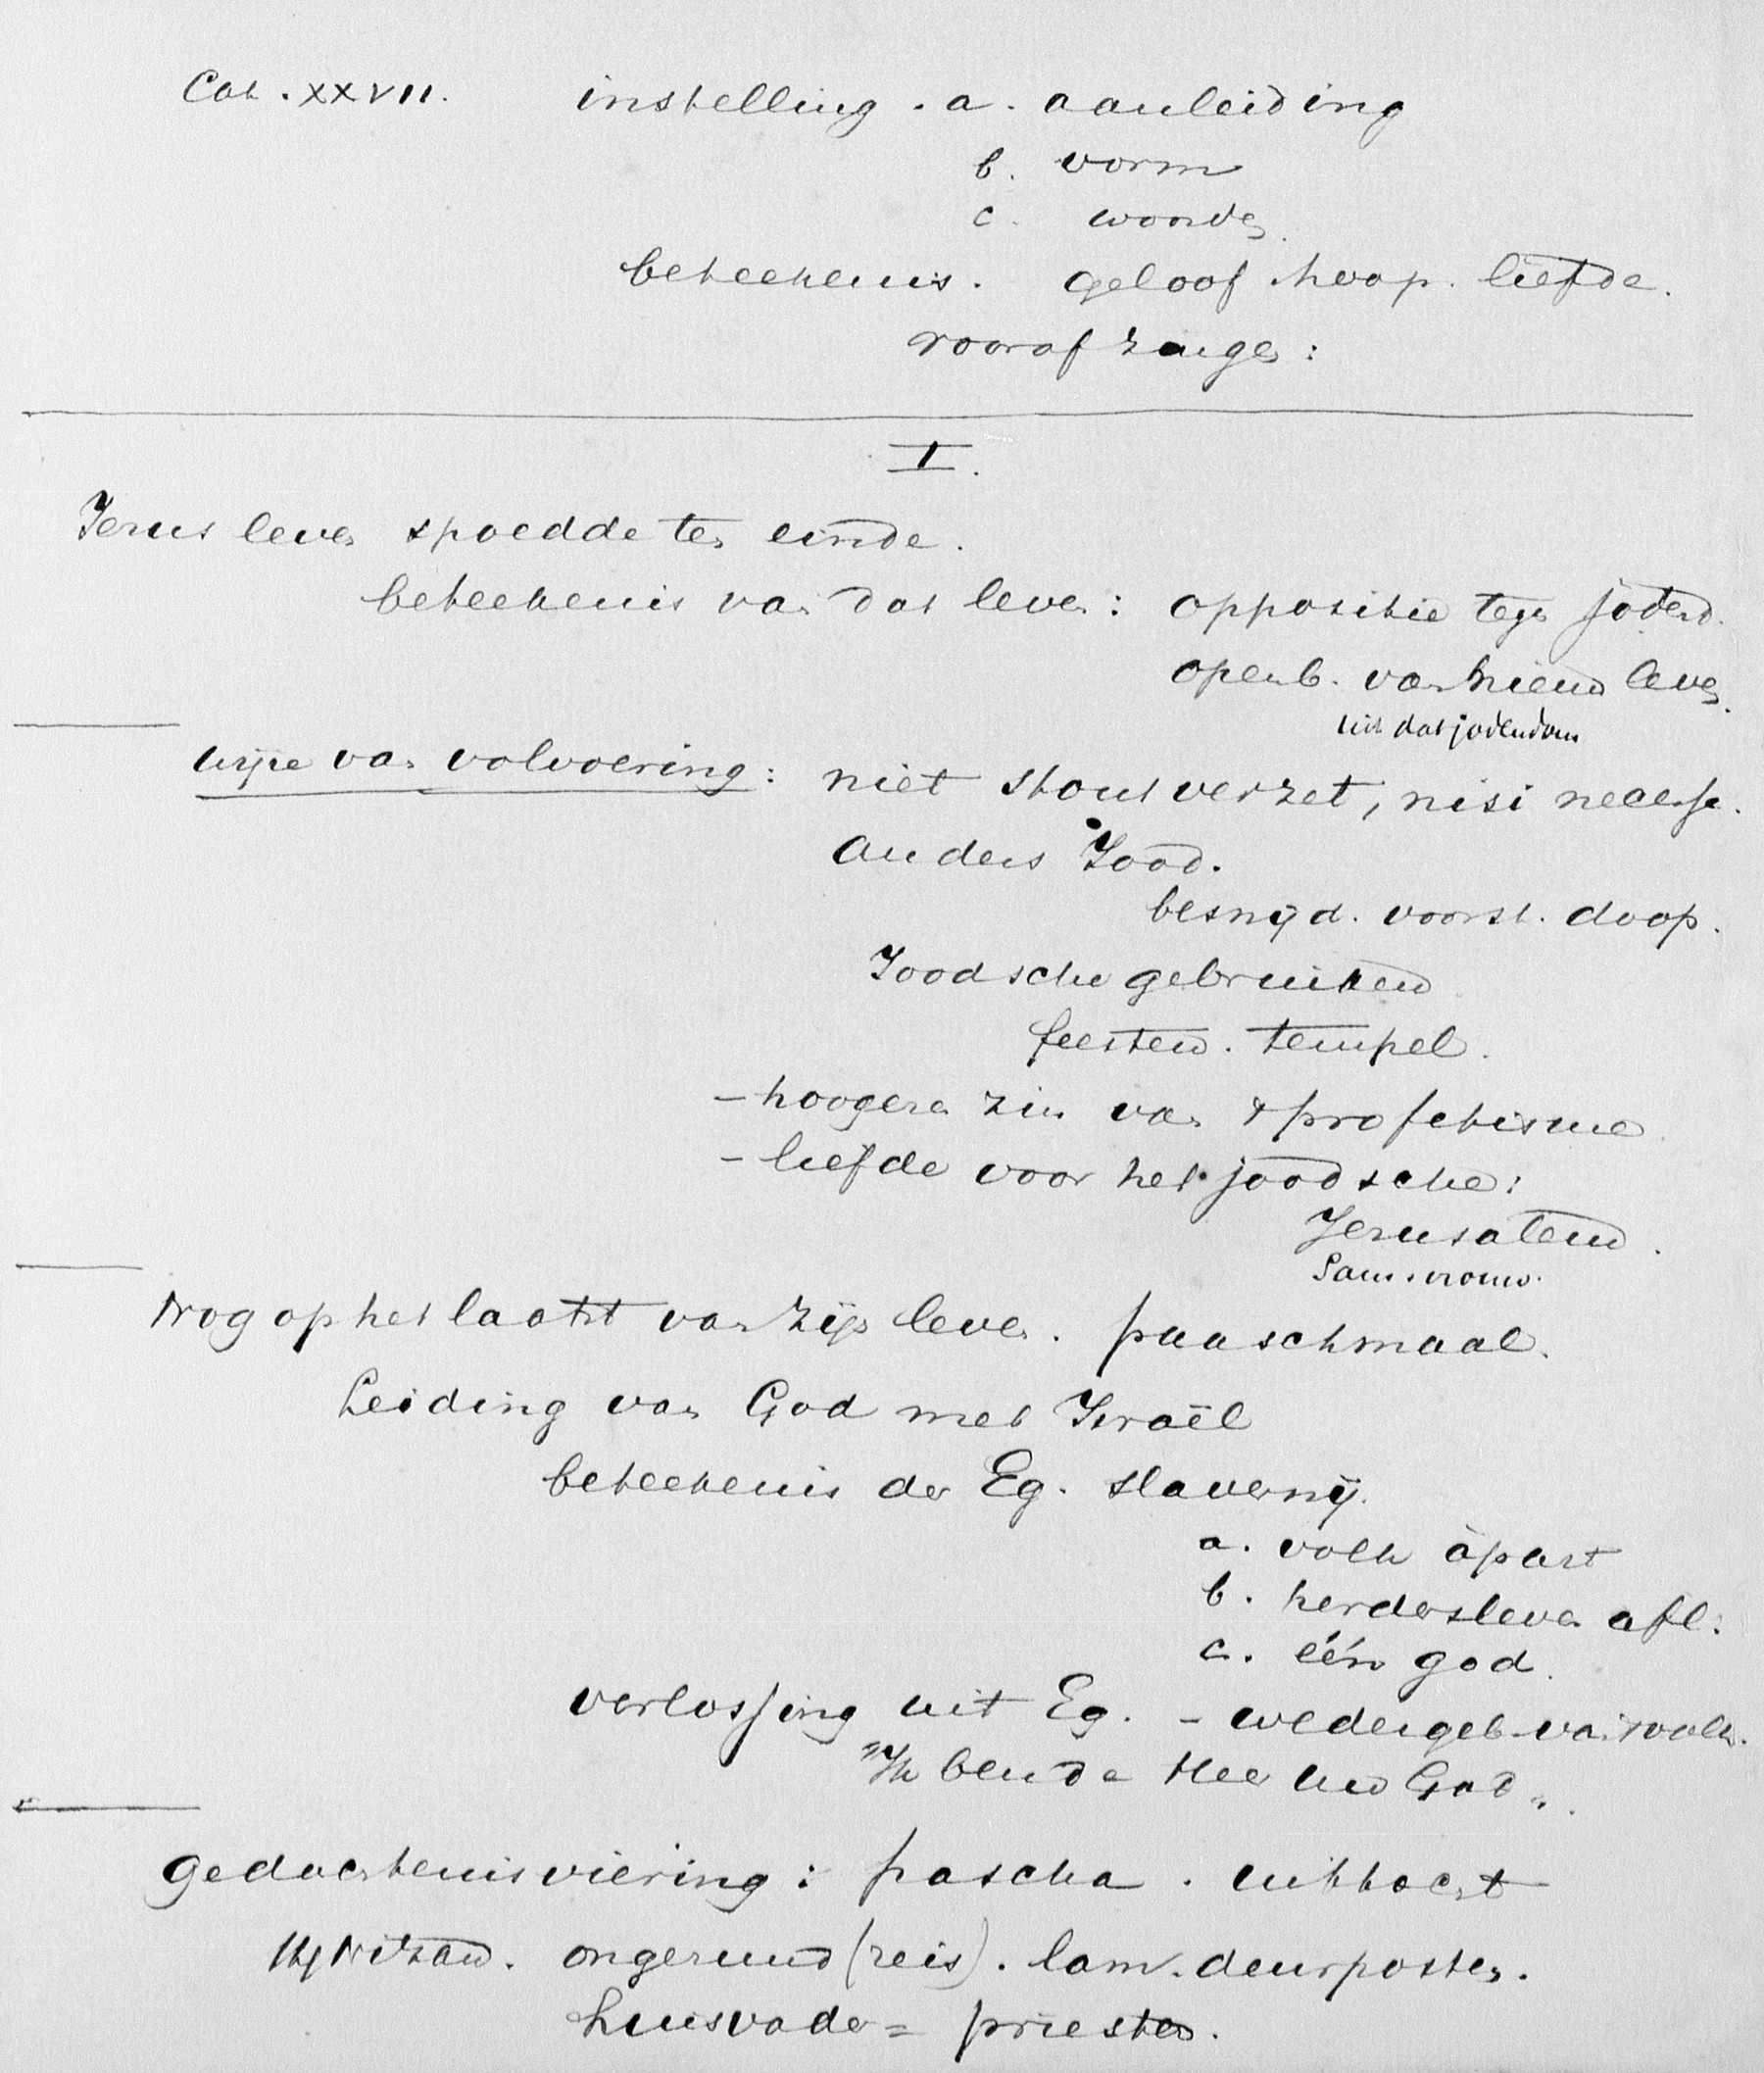 Cat. XXVII. instelling. a. aanleiding
b. vorm
c. woorden.
beteekenis. geloof. hoop. liefde.
vooraf zangen:
I.
Jezus leven spoedde ten einde.
beteekenis van dat leven: oppositie tegen jodend.
openb. van nieuw leven.
uit dat jodendom
wijze van volvoering: niet stout verzet, nisi necesse.
anders Jood.
besnijd. voorst. doop.
Joodsche gebruiken
feesten. tempel.
- hoogere zin van 't profetisme
- liefde voor het joodsche:
Jeruzalem.
Sam. vrouw.
Nog op het laatst van zijn leven. paaschmaal.
Leiding van God met Israël
beteekenis der Eg. slavernij.
a. volk àpart
b. herdersleven afl:
c. één god.
verlossing uit Eg. - wedergeb. van 't volk.
"Ik ben de Heer uw God".
gedachtenisviering: pascha. uittocht
14 Nizan. ongezuurd (reis). lam. deurposten.
huisvader = priester.